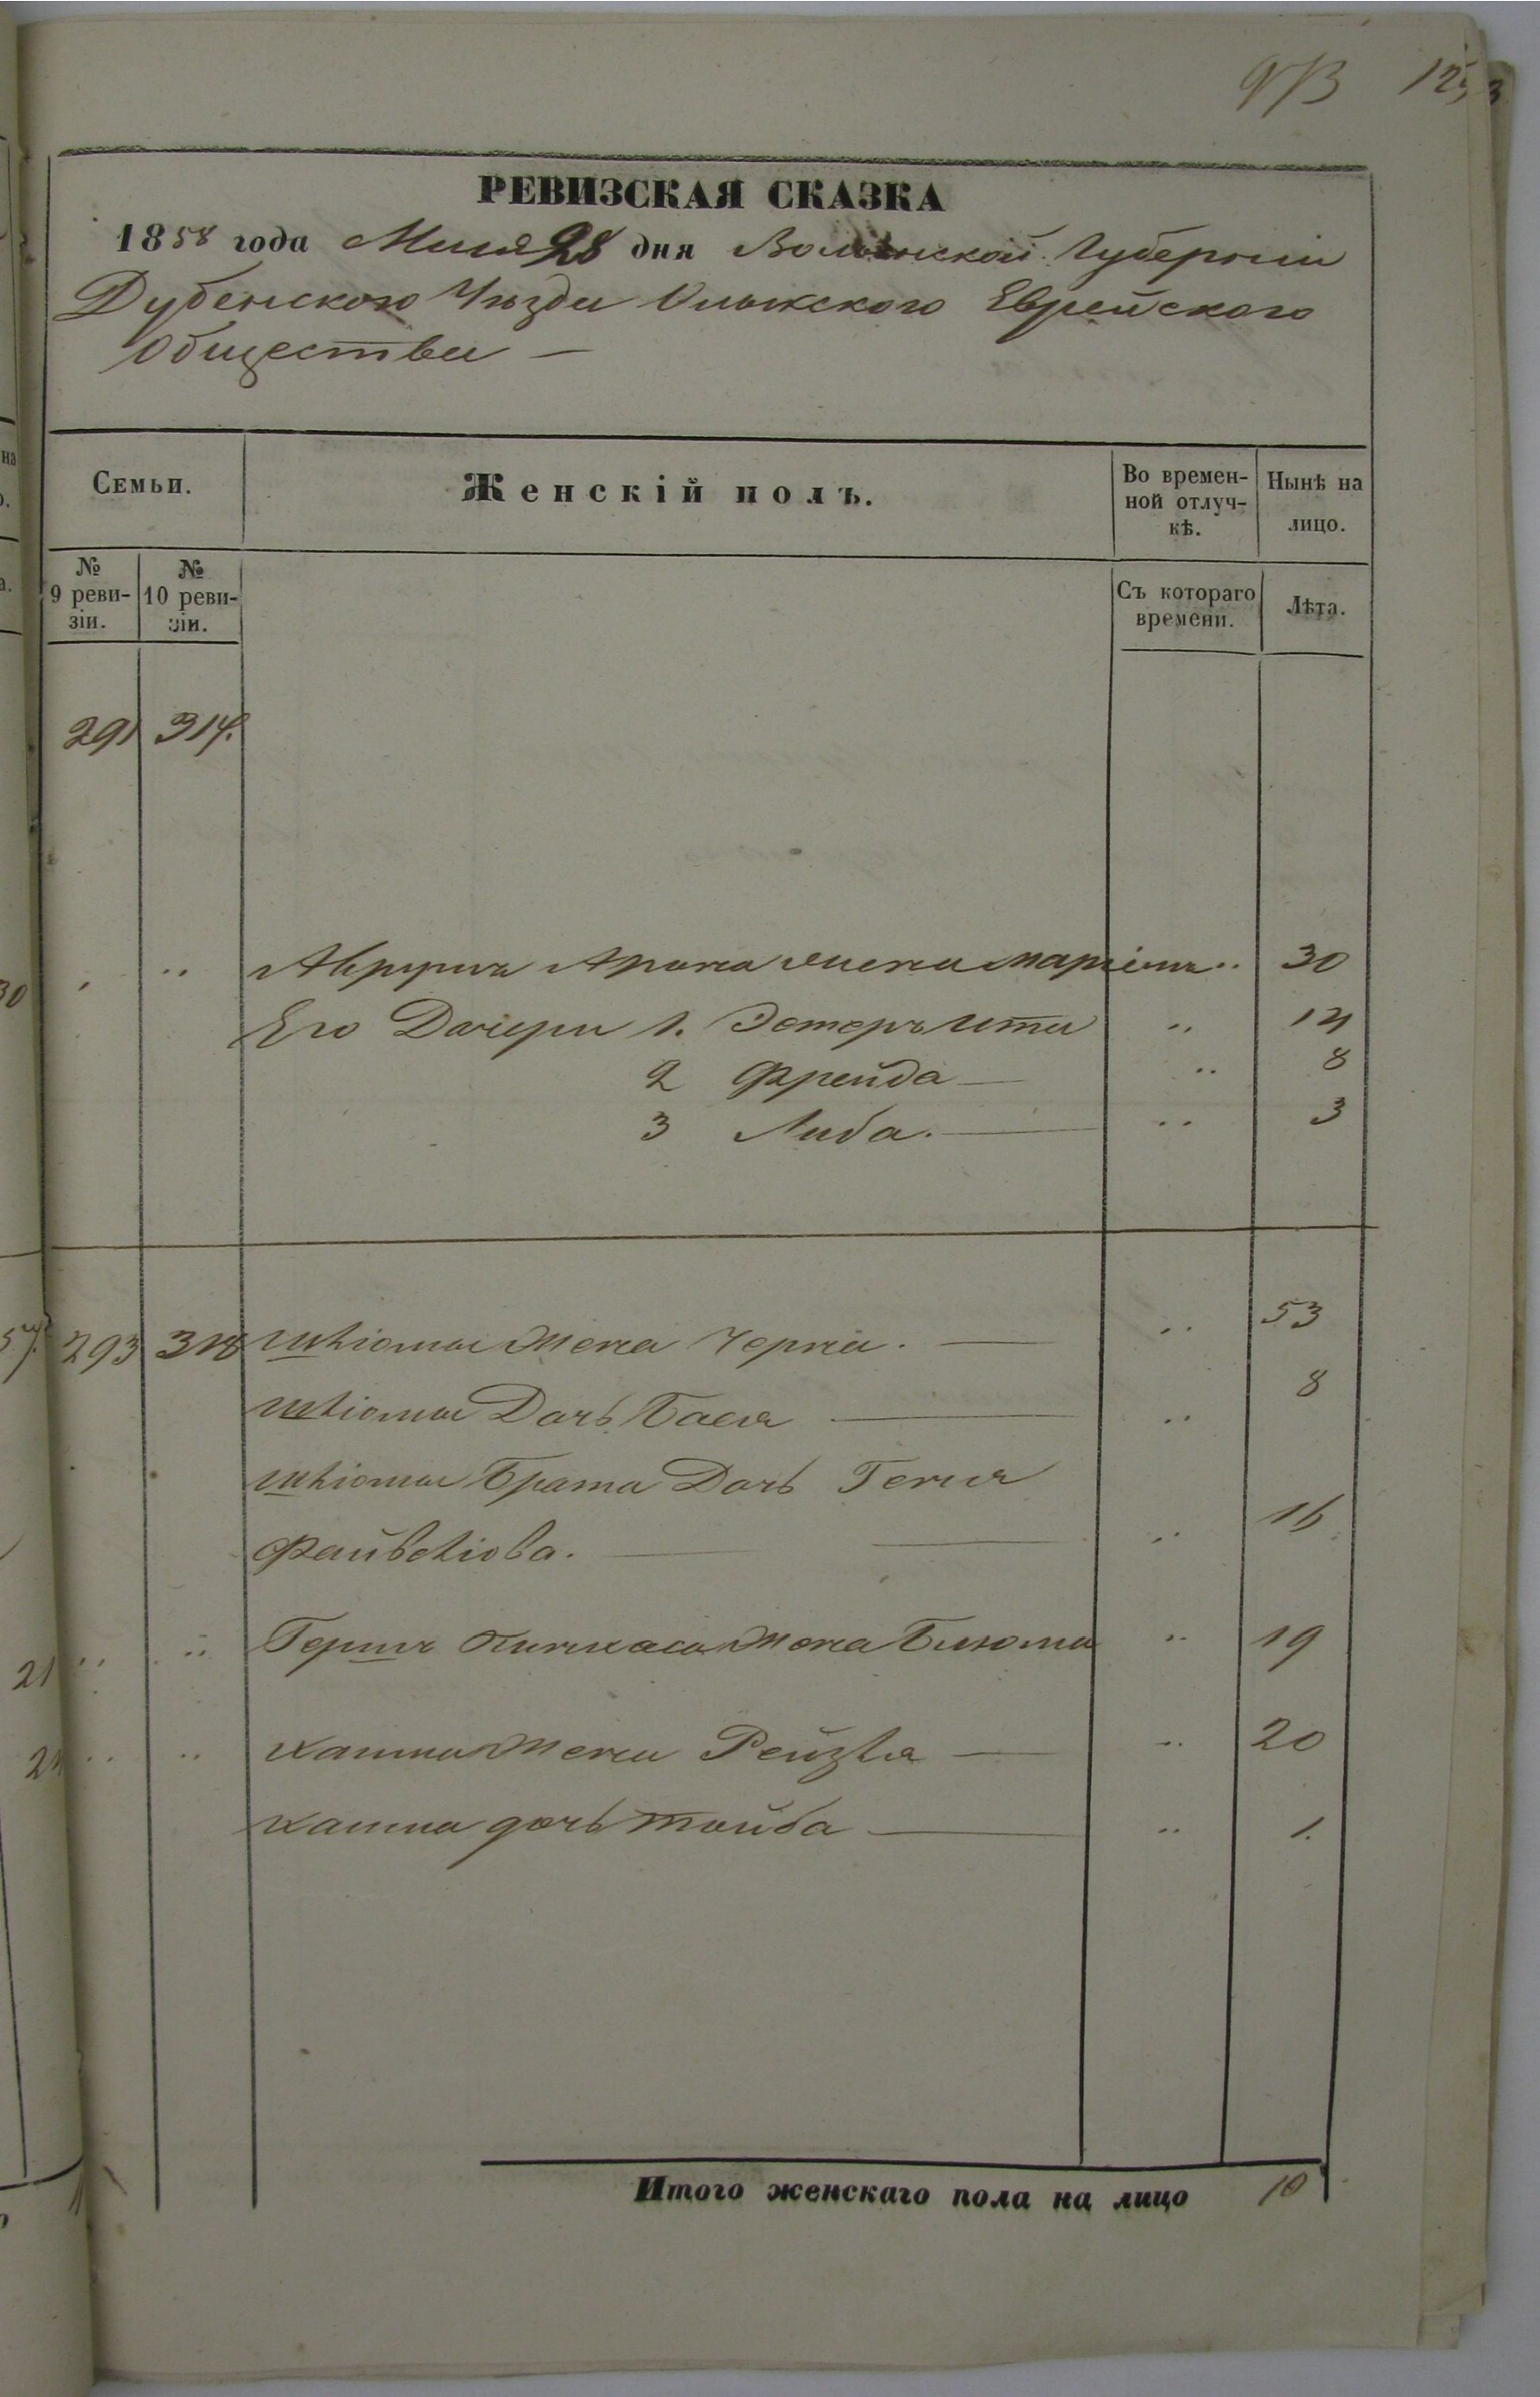 973 1253
РЕВИЗСКАЯ СКАЗКА
1858 года Маия 28 дня Волынской Губерніи
Дубенского Уѣзда Олыкского Еврейского
Общества —
Семьи.
Женскій полъ.
Во времен-
ной отлуч-
кѣ.
Нынѣ на
лицо.
№
9 реви-
зіи.
№
10 реви-
зіи.
Съ котораго
времени.
Лѣта.
291 317.
Арона жена Маріемъ .. 30
Его Дочери 1. Эстеръ Ита .. 14
2 Фрейда — .. 8
3 Либа. — .. 3
293 318 Шліомы жена Черна. — .. 53
Шліомы Дочь Бася — .. 8
Шліомы Брата Дочь Геня
Файвеліова. — .. 16
Гершъ Пинхаса жена Блюма .. 19
жена Рейзля — .. 20
дочь Тойба — .. 1.
Итого женскаго пола на лицо 10